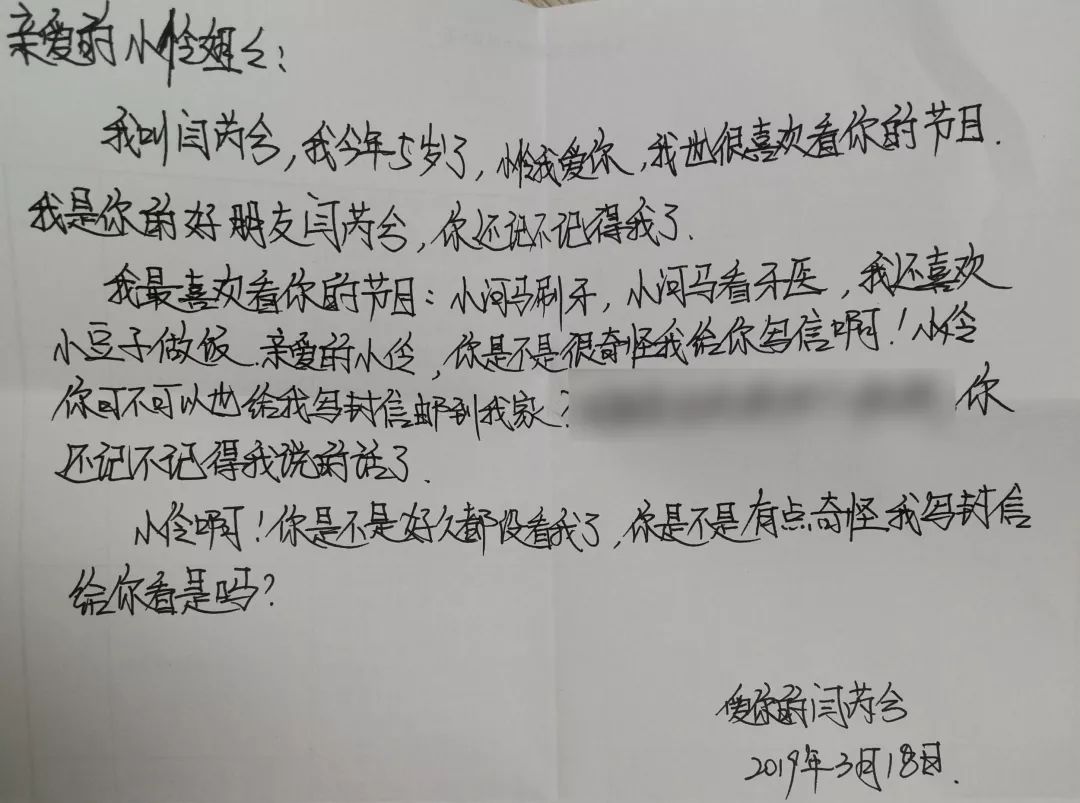 亲爱的小伶姐姐:
我叫闫芮兮,我今年5岁了,小伶我爱你,我也很喜欢看你的节目.
我是你的好朋友闫芮兮,你还记不记得我了.
我最喜欢看你的节目:小河马刷牙,小河马看牙医,我还喜欢
小豆子做饭.亲爱的小伶,你是不是很奇怪我给你写信啊!小伶
你可不可以也给我写封信邮到我家?你
还记不记得我说的话了.
小伶啊!你是不是好久都没看我了,你是不是有点奇怪我写封信
给你看是吗?
爱你的闫芮兮
2019年3月18日.